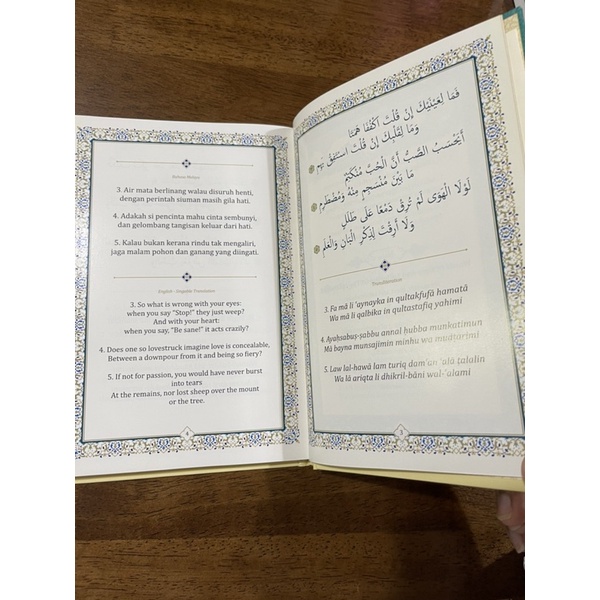 فَمَا لِعَيْنَيْكَ إِنْ قُلْتَ اكْفُفَا هَمَتَا
وَمَا لِقَلْبِكَ إِنْ قُلْتَ اسْتَفِقْ يَهِمِ ٣
أَيَحْسَبُ الصَّبُّ أَنَّ الْحُبَّ مُنْكَتِمٌ
مَا بَيْنَ مُنْسَجِمٍ مِنْهُ وَمُضْطَرِمِ ٤
لَوْلَا الْهَوَى لَمْ تُرِقْ دَمْعًا عَلَى طَلَلٍ
وَلَا أَرِقْتَ لِذِكْرِ الْبَانِ وَالْعَلَمِ ٥
Transliteration
3. Fa mā li 'aynayka in qultakfufā hamatā
Wa mā li qalbika in qultastafiq yahimi
4. Ayaḥsabuṣ-ṣabbu annal ḥubba munkatimun
Mā bayna munsajimin minhu wa muḍṭarimi
5. Law lal-hawā lam turiq dam'an 'alā ṭalalin
Wa lā ariqta li dhikril-bāni wal-'alami
3
Bahasa Melayu
3. Air mata berlinang walau disuruh henti,
dengan perintah siuman masih gila hati.
4. Adakah si pencinta mahu cinta sembunyi,
dan gelombang tangisan keluar dari hati.
5. Kalau bukan kerana rindu tak mengaliri,
jaga malam pohon dan ganang yang diingati.
English - Singable Translation
3. So what is wrong with your eyes:
when you say "Stop!" they just weep?
And with your heart:
when you say, "Be sane!" it acts crazily?
4. Does one so lovestruck imagine love is concealable,
Between a downpour from it and being so fiery?
5. If not for passion, you would have never burst
into tears
At the remains, nor lost sleep over the mount
or the tree.
4